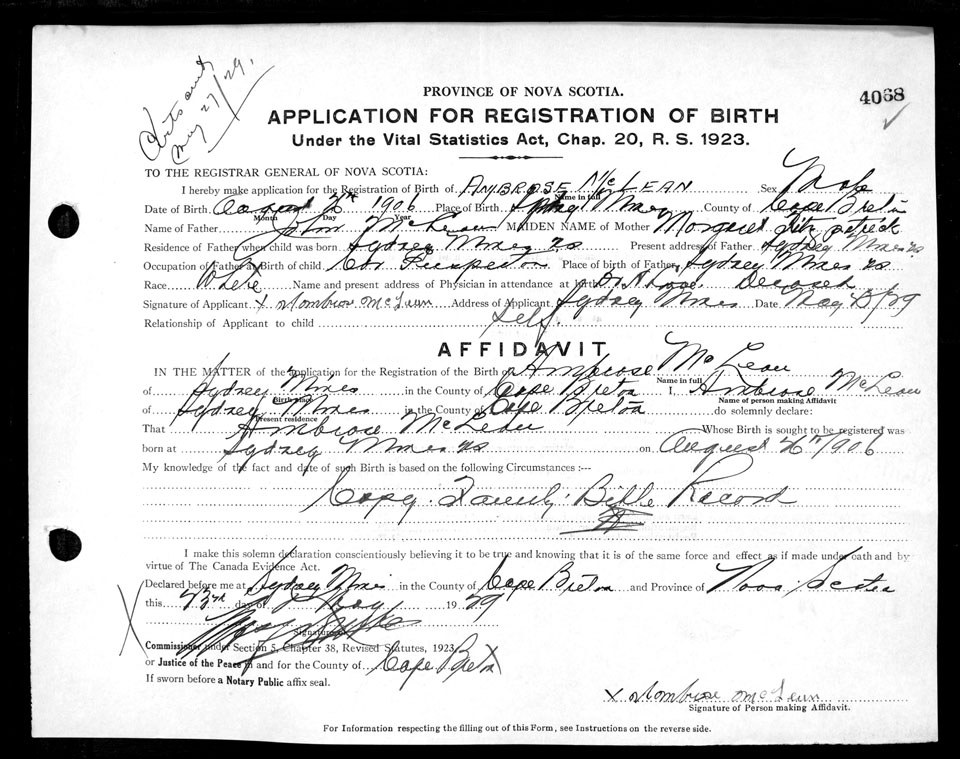 May 27/29.
PROVINCE OF NOVA SCOTIA.
4068
APPLICATION FOR REGISTRATION OF BIRTH
Under the Vital Statistics Act, Chap. 20, R. S. 1923.
TO THE REGISTRAR GENERAL OF NOVA SCOTIA:
I hereby make application for the Registration of Birth of AMBROSE McLEAN Sex Male
Name in full
Date of Birth August 26th 1906 Place of Birth Sydney Mines County of Cape Breton
Month Day Year
Name of Father John McLean MAIDEN NAME of Mother Margaret Fitzpatrick
Residence of Father when child was born Sydney Mines NS Present address of Father Sydney Mines NS
Occupation of Father at Birth of child. Car Inspector Place of birth of Father Sydney Mines NS
Race White Name and present address of Physician in attendance at birth Dr Deceased
Signature of Applicant X Ambrose McLean Address of Applicant Sydney Mines Date May 23/29
Relationship of Applicant to child Self.
AFFIDAVIT
IN THE MATTER of the application for the Registration of the Birth of Ambrose McLean
Name in full
of Sydney Mines in the County of Cape Breton I, Ambrose McLean
Birth place Name of person making Affidavit
of Sydney Mines in the County of Cape Breton do solemnly declare:
Present residence
That Ambrose McLean Whose Birth is sought to be registered was
born at Sydney Mines NS on August 26th 1906
My knowledge of the fact and date of such Birth is based on the following Circumstances :---
Copy Family Bible Record
I make this solemn declaration conscientiously believing it to be true and knowing that it is of the same force and effect as if made under oath and by
virtue of The Canada Evidence Act.
Declared before me at Sydney Mines in the County of Cape Breton and Province of Nova Scotia
this 23rd day of May 1929
Signature of
Commissioner under Section 5, Chapter 38, Revised Statutes, 1923
or Justice of the Peace in and for the County of Cape Breton
If sworn before a Notary Public affix seal.
X Ambrose McLean
Signature of Person making Affidavit.
For Information respecting the filling out of this Form, see Instructions on the reverse side.